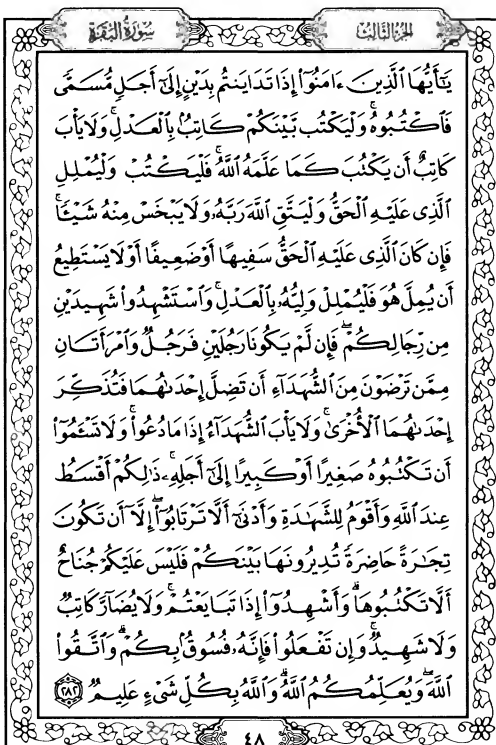 سُورَةُ البَقَرَةِ الجُزْءُ الثَّالِثُ
يَٰٓأَيُّهَا ٱلَّذِينَ ءَامَنُوٓا۟ إِذَا تَدَايَنتُم بِدَيْنٍ إِلَىٰٓ أَجَلٍ مُّسَمًّى
فَٱكْتُبُوهُ ۚ وَلْيَكْتُب بَّيْنَكُمْ كَاتِبٌۢ بِٱلْعَدْلِ ۚ وَلَا يَأْبَ
كَاتِبٌ أَن يَكْتُبَ كَمَا عَلَّمَهُ ٱللَّهُ ۚ فَلْيَكْتُبْ وَلْيُمْلِلِ
ٱلَّذِى عَلَيْهِ ٱلْحَقُّ وَلْيَتَّقِ ٱللَّهَ رَبَّهُۥ وَلَا يَبْخَسْ مِنْهُ شَيْـًٔا ۚ
فَإِن كَانَ ٱلَّذِى عَلَيْهِ ٱلْحَقُّ سَفِيهًا أَوْ ضَعِيفًا أَوْ لَا يَسْتَطِيعُ
أَن يُمِلَّ هُوَ فَلْيُمْلِلْ وَلِيُّهُۥ بِٱلْعَدْلِ ۚ وَٱسْتَشْهِدُوا۟ شَهِيدَيْنِ
مِن رِّجَالِكُمْ ۖ فَإِن لَّمْ يَكُونَا رَجُلَيْنِ فَرَجُلٌ وَٱمْرَأَتَانِ
مِمَّن تَرْضَوْنَ مِنَ ٱلشُّهَدَآءِ أَن تَضِلَّ إِحْدَىٰهُمَا فَتُذَكِّرَ
إِحْدَىٰهُمَا ٱلْأُخْرَىٰ ۚ وَلَا يَأْبَ ٱلشُّهَدَآءُ إِذَا مَا دُعُوا۟ ۚ وَلَا تَسْـَٔمُوٓا۟
أَن تَكْتُبُوهُ صَغِيرًا أَوْ كَبِيرًا إِلَىٰٓ أَجَلِهِۦ ۚ ذَٰلِكُمْ أَقْسَطُ
عِندَ ٱللَّهِ وَأَقْوَمُ لِلشَّهَٰدَةِ وَأَدْنَىٰٓ أَلَّا تَرْتَابُوٓا۟ ۖ إِلَّآ أَن تَكُونَ
تِجَٰرَةً حَاضِرَةً تُدِيرُونَهَا بَيْنَكُمْ فَلَيْسَ عَلَيْكُمْ جُنَاحٌ
أَلَّا تَكْتُبُوهَا ۗ وَأَشْهِدُوٓا۟ إِذَا تَبَايَعْتُمْ ۚ وَلَا يُضَآرَّ كَاتِبٌ
وَلَا شَهِيدٌ ۚ وَإِن تَفْعَلُوا۟ فَإِنَّهُۥ فُسُوقٌۢ بِكُمْ ۗ وَٱتَّقُوا۟
ٱللَّهَ ۖ وَيُعَلِّمُكُمُ ٱللَّهُ ۗ وَٱللَّهُ بِكُلِّ شَىْءٍ عَلِيمٌ ٢٨٢
٤٨